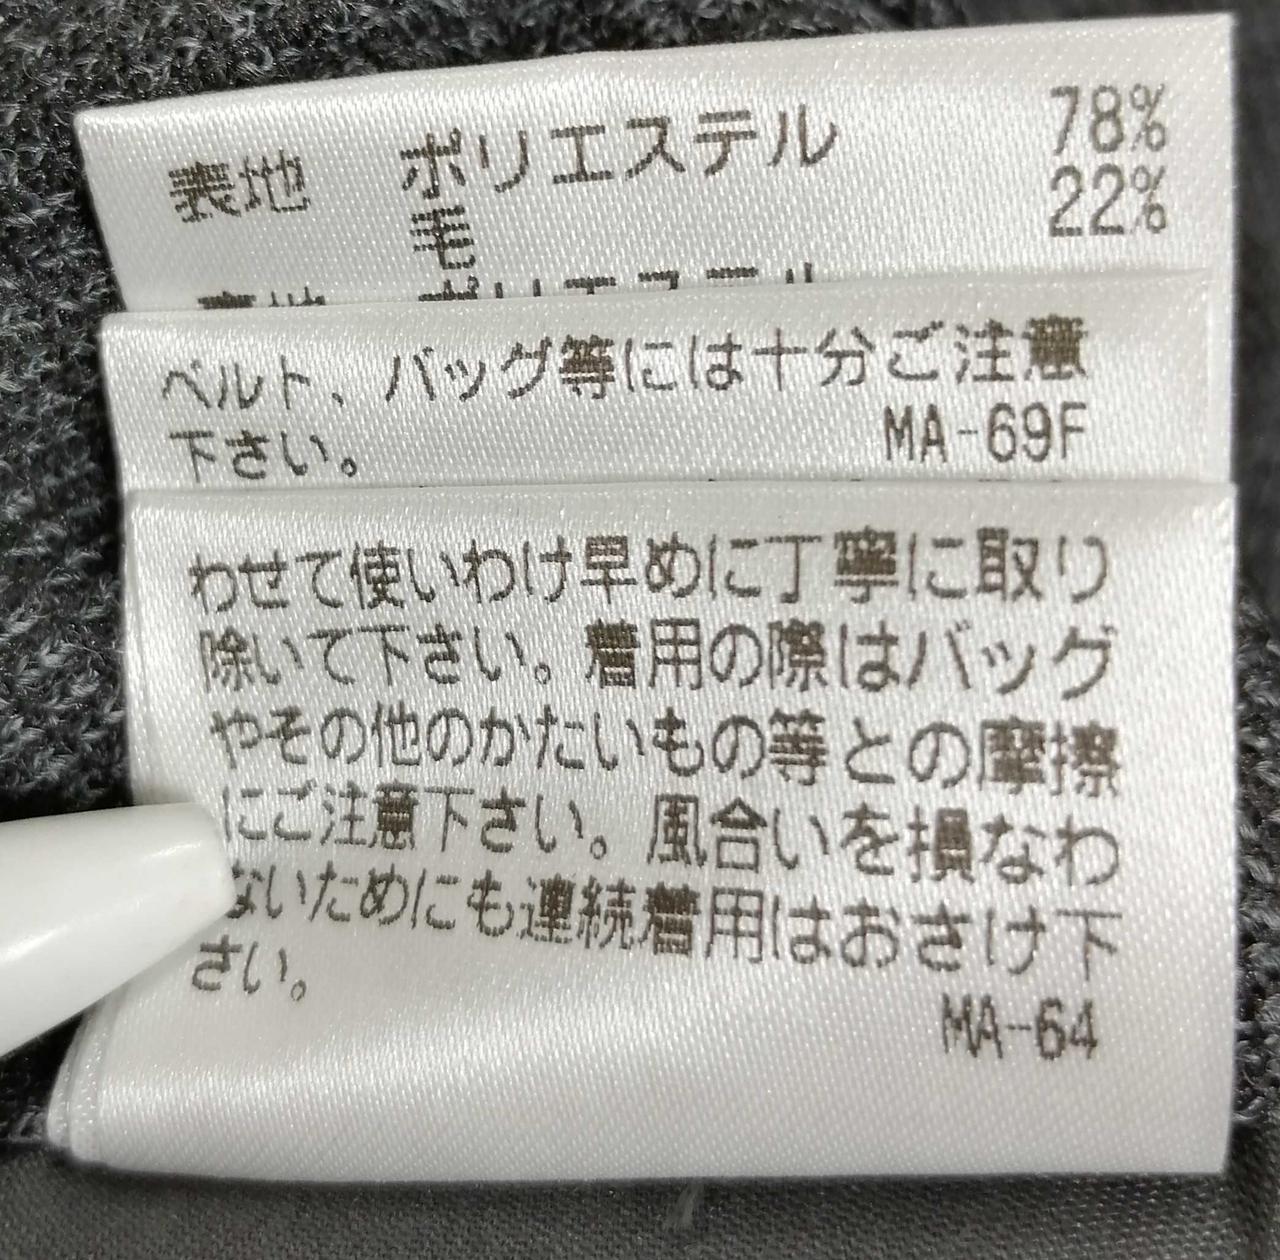 表地 ポリエステル 78%
毛 22%
ベルト、バッグ等には十分ご注意
下さい。 MA-69F
わせて使いわけ早めに丁寧に取り
除いて下さい。着用の際はバッグ
やその他のかたいもの等との摩擦
にご注意下さい。風合いを損なわ
ないためにも連続着用はおさけ下
さい。
MA-64